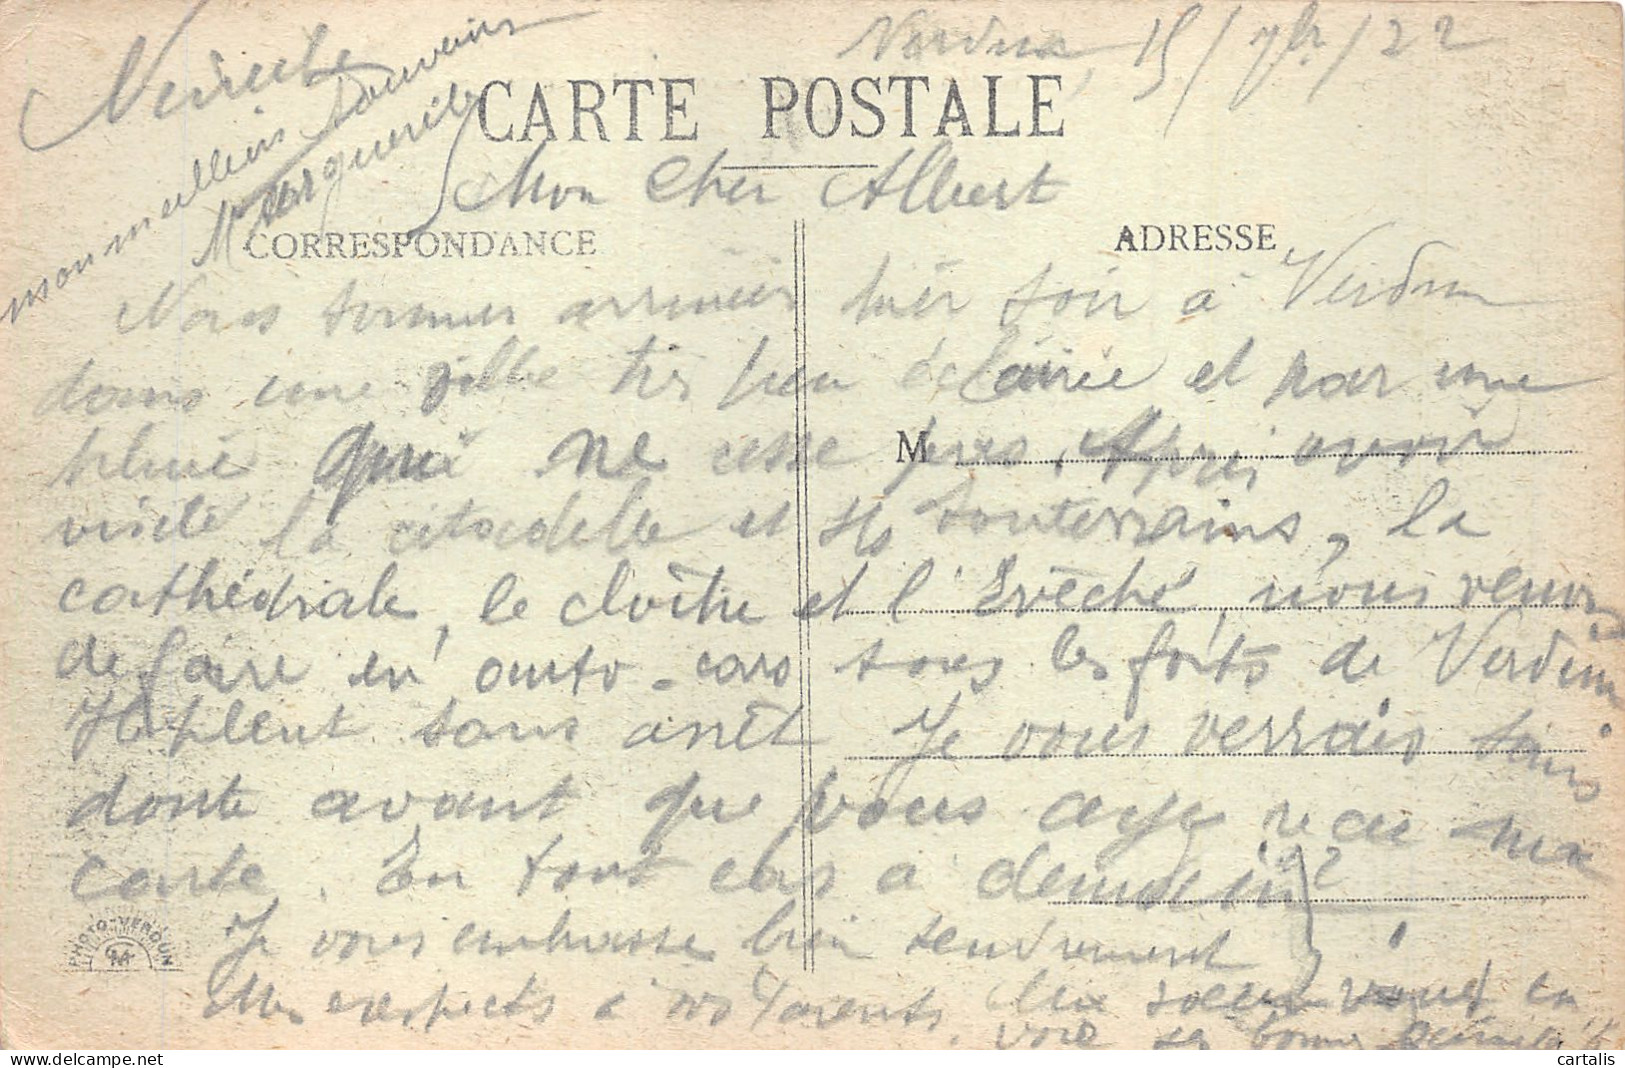 Verdun, 15/7bre/22
mon meilleur souvenir
Marguerite
CARTE POSTALE
Mon Cher Albert
CORRESPONDANCE
ADRESSE
Nous sommes arrivées hier soir à Verdun
dans une ville très peu éclairée et par une
pluie qui ne cesse pas. Après avoir
M
visité la citadelle et ses souterrains, la
cathédrale, le cloître et l'Evêché, nous venons
de faire en auto-cars tous les forts de Verdun.
Il pleut sans arrêt Je vous verrais sans
doute avant que vous ayez reçu ma
carte. En tout cas à demain?
Je vous embrasse bien tendrement
Mes respects à vos Parents. Ma soeur vous en
voie ses bonnes
PHOTO-VERDUN